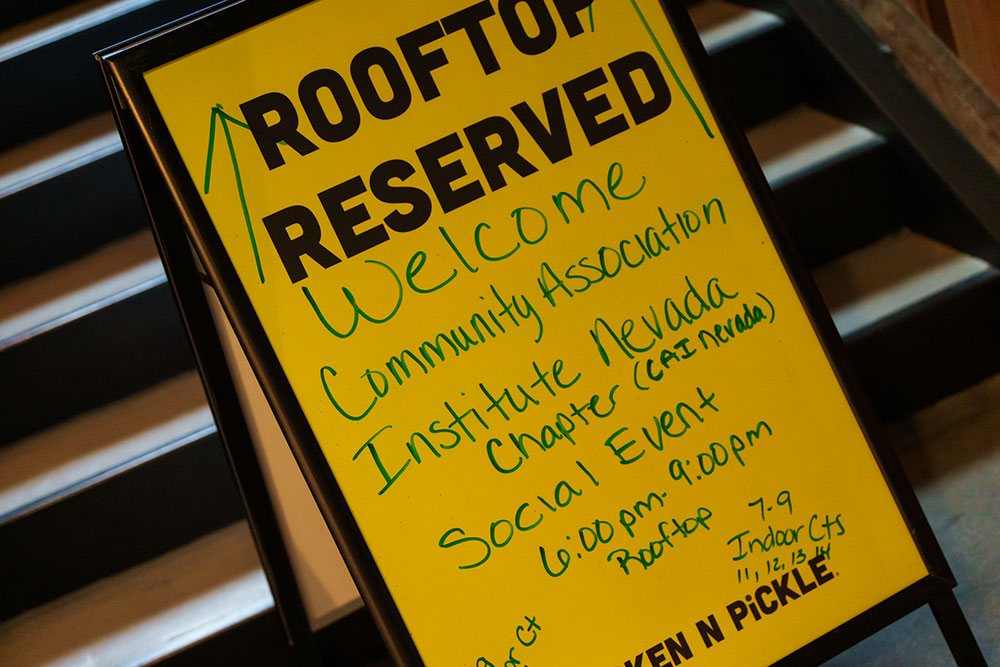 ROOFTOP
RESERVED
Welcome
Community Association
Institute Nevada
Chapter (CAI nevada)
Social Event
6:00pm-9:00pm
Rooftop
7-9
Indoor Cts
11, 12, 13, 14
Ct
KEN N PiCKLE